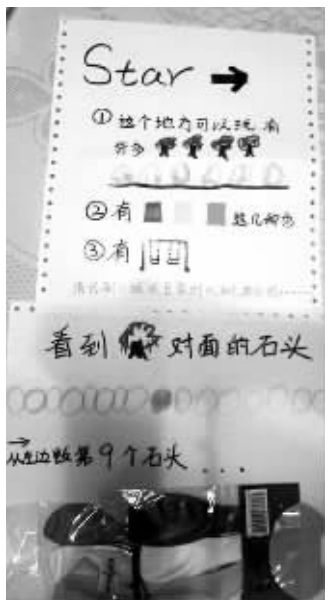 Star →
①这个地方可以玩 有
许多
②有 这几种色
③有
看到 对面的石头
从左边数第9个石头...